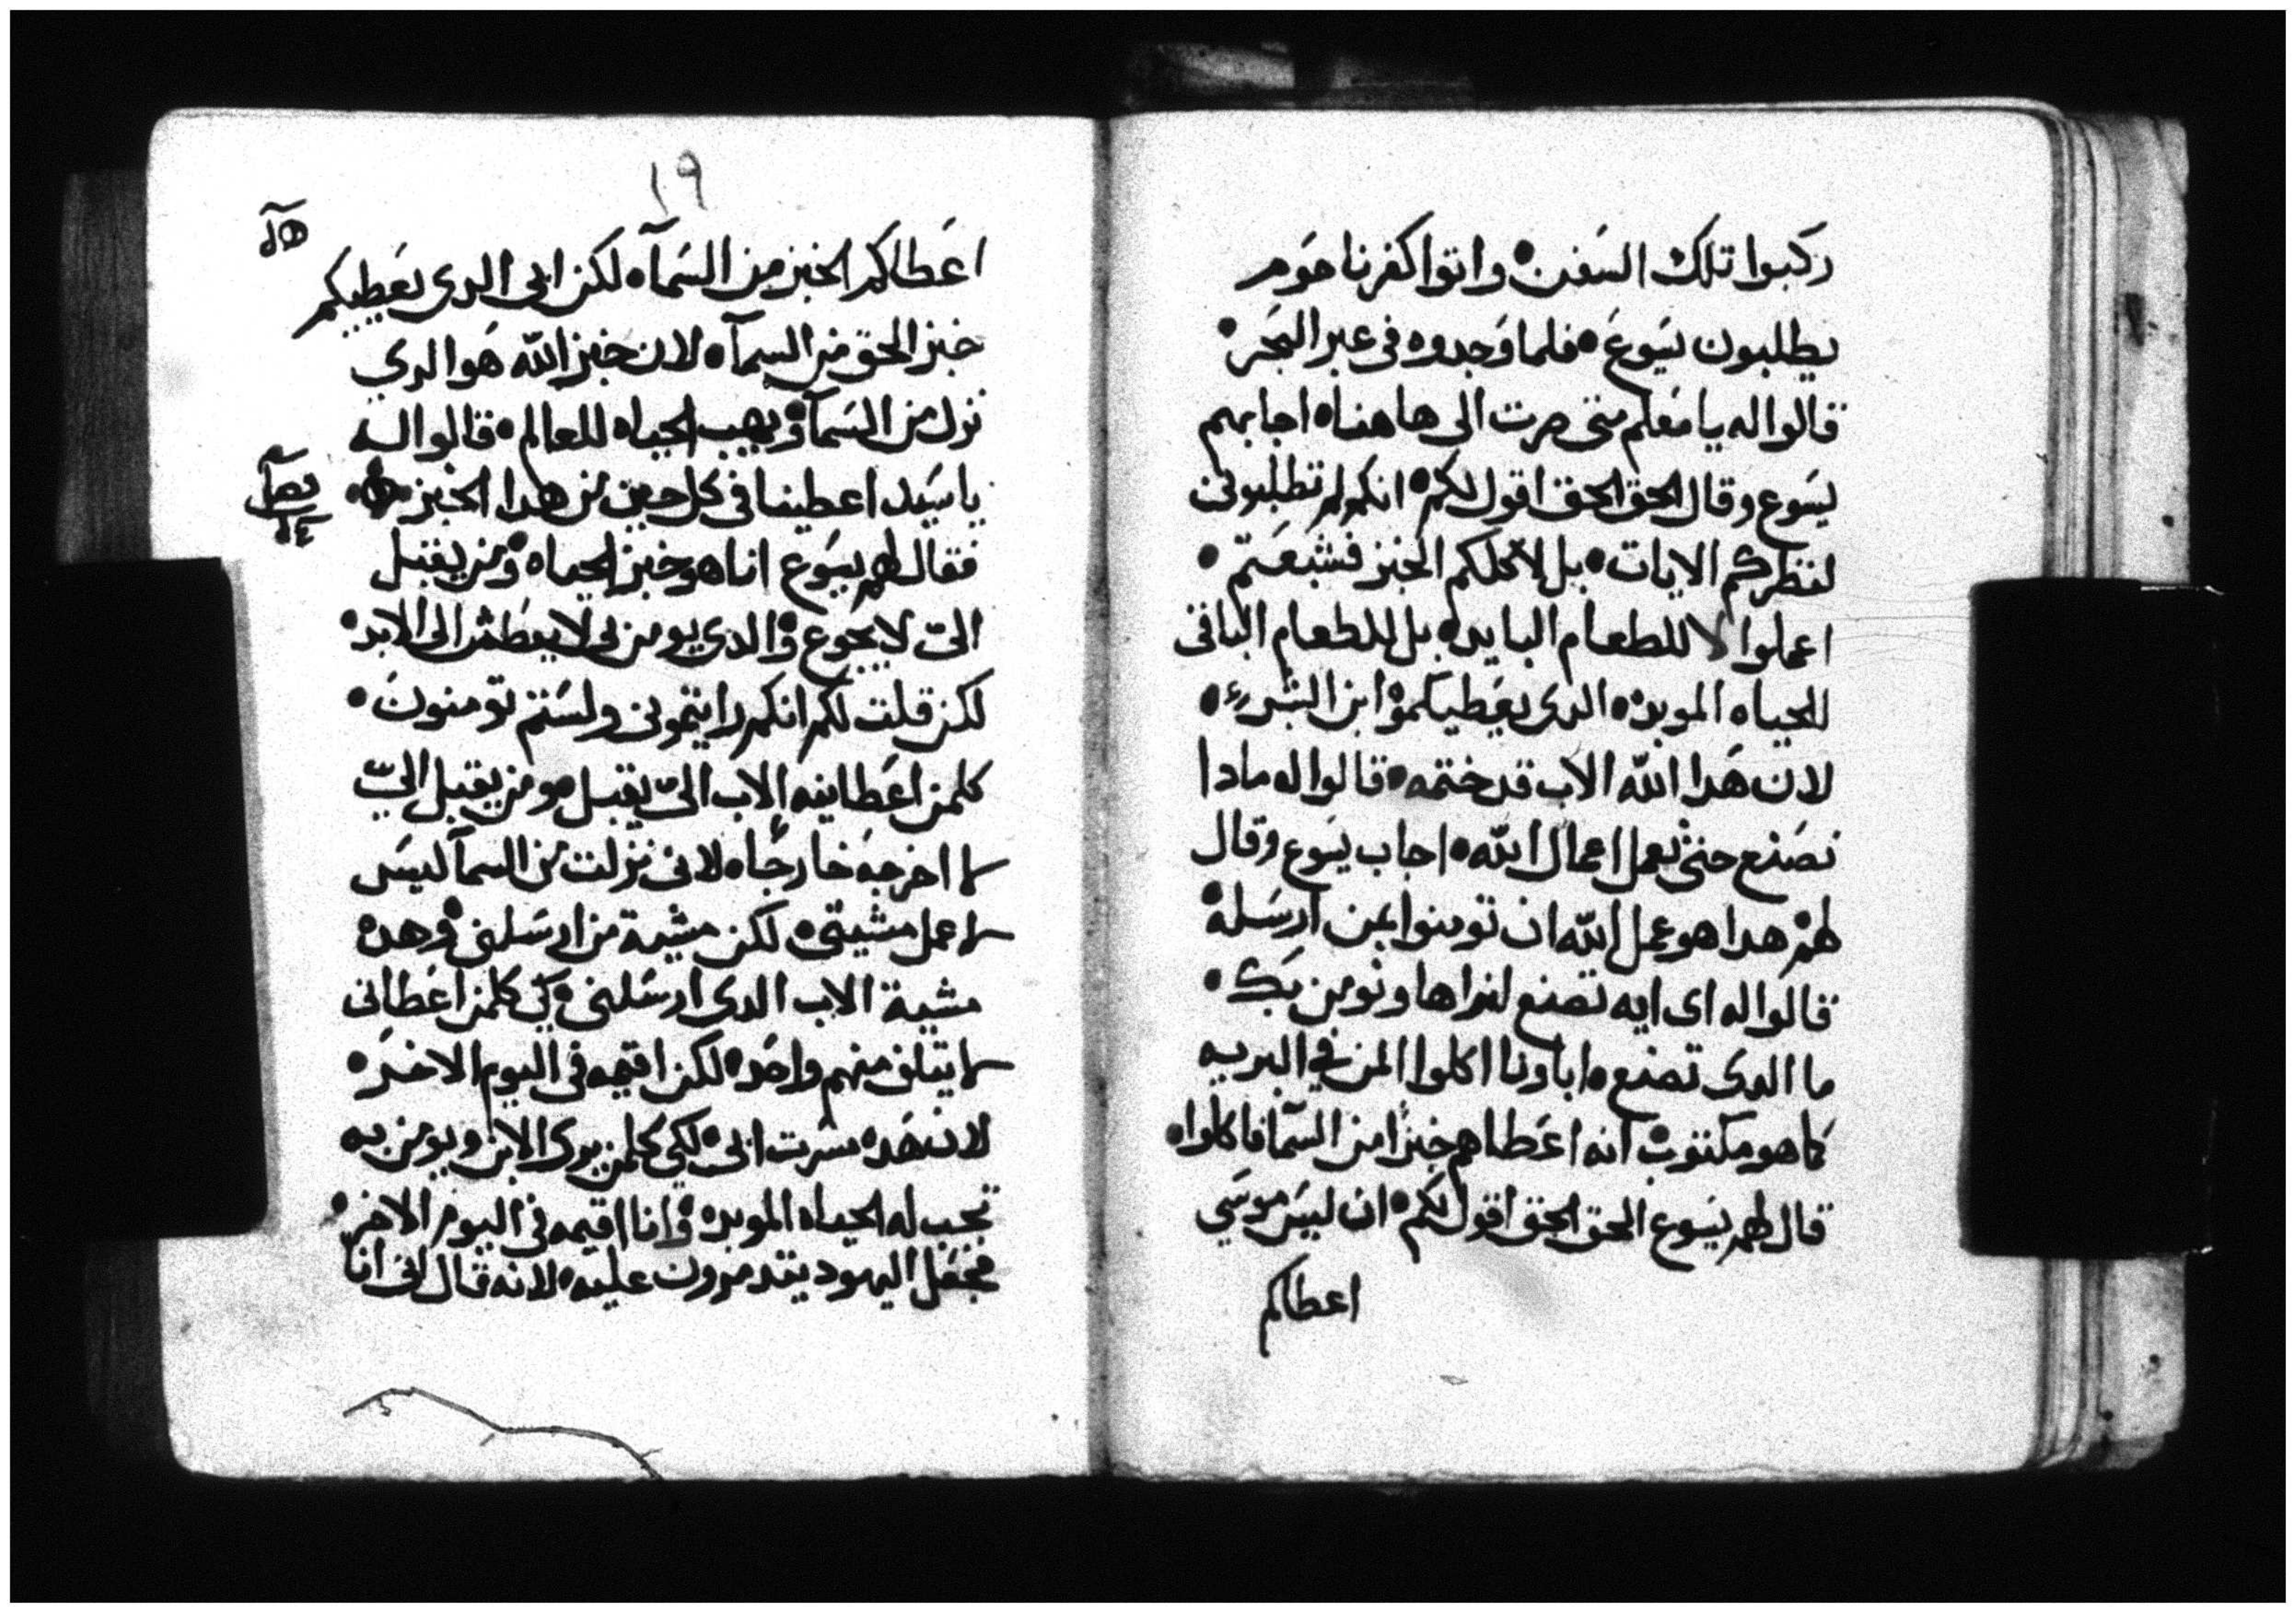 ركبوا تلك السفن • واتوا كفرناحوم
يطلبون يسوع • فلما وجدوه في عبر البحر •
قالوا له يا معلم متى صرت الى هاهنا • اجابهم
يسوع وقال الحق الحق اقول لكم • انكم لم تطلبوني
لنظركم الايات • بل لاكلكم الخبز فشبعتم •
اعملوا لا للطعام البايد • بل للطعام الباقي
للحياه الموبده • الدى يعطيكموه ابن البشر •
لان هدا الله الاب قد ختمه • قالوا له مادا
نصنع حتى نعمل اعمال الله • اجاب يسوع وقال
لهم هدا هو عمل الله ان تومنوا بمن ارسله •
قالوا له اى ايه تصنع لنراها ونومن بك •
ما الدى تصنع • اباونا اكلوا المن في البريه
كما هو مكتوب • انه اعطاهم خبزا من السما فاكلوا •
قال لهم يسوع الحق الحق اقول لكم • ان ليس موسي
اعطاكم
١٩
اعطاكم الخبز من السمآ • لكن ابى الدى يعطيكم
خبز الحق من السمآ • لان خبز الله هو الدي
نزل من السمآ • ويهب الحياه للعالم • قالوا له
يا سيد اعطينا في كل حين من هدا الخبز •
فقال لهم يسوع انا هو خبز الحياه • ومن يقبل
الىّ لا يجوع • والدي يومن بى لا يعطش الى الابد •
لكن قلت لكم انكم رايتموني ولستم تومنون •
كلمن اعطانيه الاب الىّ يقبل • ومن يقبل الىّ
لا اخرجه خارجًا • لانى نزلت من السمآ ليس
لاعمل مشيتى • لكن مشية من ارسلنى • وهده
مشية الاب الدى ارسلنى • كي كلمن اعطانى
لا يتلف منهم واحد • لكن اقيمه في اليوم الاخر •
لان هده مسرت ابى • لكي كلمن يرى الابن ويومن به
تجب له الحياه الموبده • وانا اقيمه في اليوم الاخر •
فجعل اليهود يتدمرون عليه • لانه قال انى انا